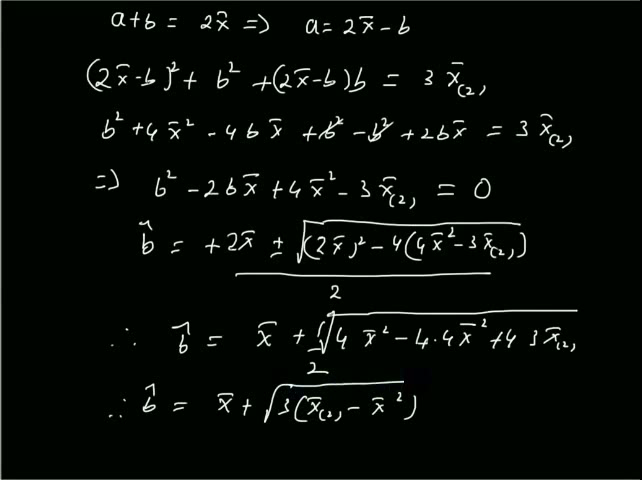 a+b = 2x̄ => a = 2x̄-b
(2x̄-b)² + b² + (2x̄-b)b = 3 x̄₍₂₎
b² + 4x̄² - 4bx̄ + b² - b² + 2bx̄ = 3 x̄₍₂₎
=> b² - 2bx̄ + 4x̄² - 3x̄₍₂₎ = 0
b̂ = +2x̄ ± √((2x̄)² - 4(4x̄² - 3x̄₍₂₎))
2
∴ b̂ = x̄ + ½√(4 x̄² - 4·4x̄² + 4 3x̄₍₂₎
∴ b̂ = x̄ + √(3(x̄₍₂₎ - x̄²))